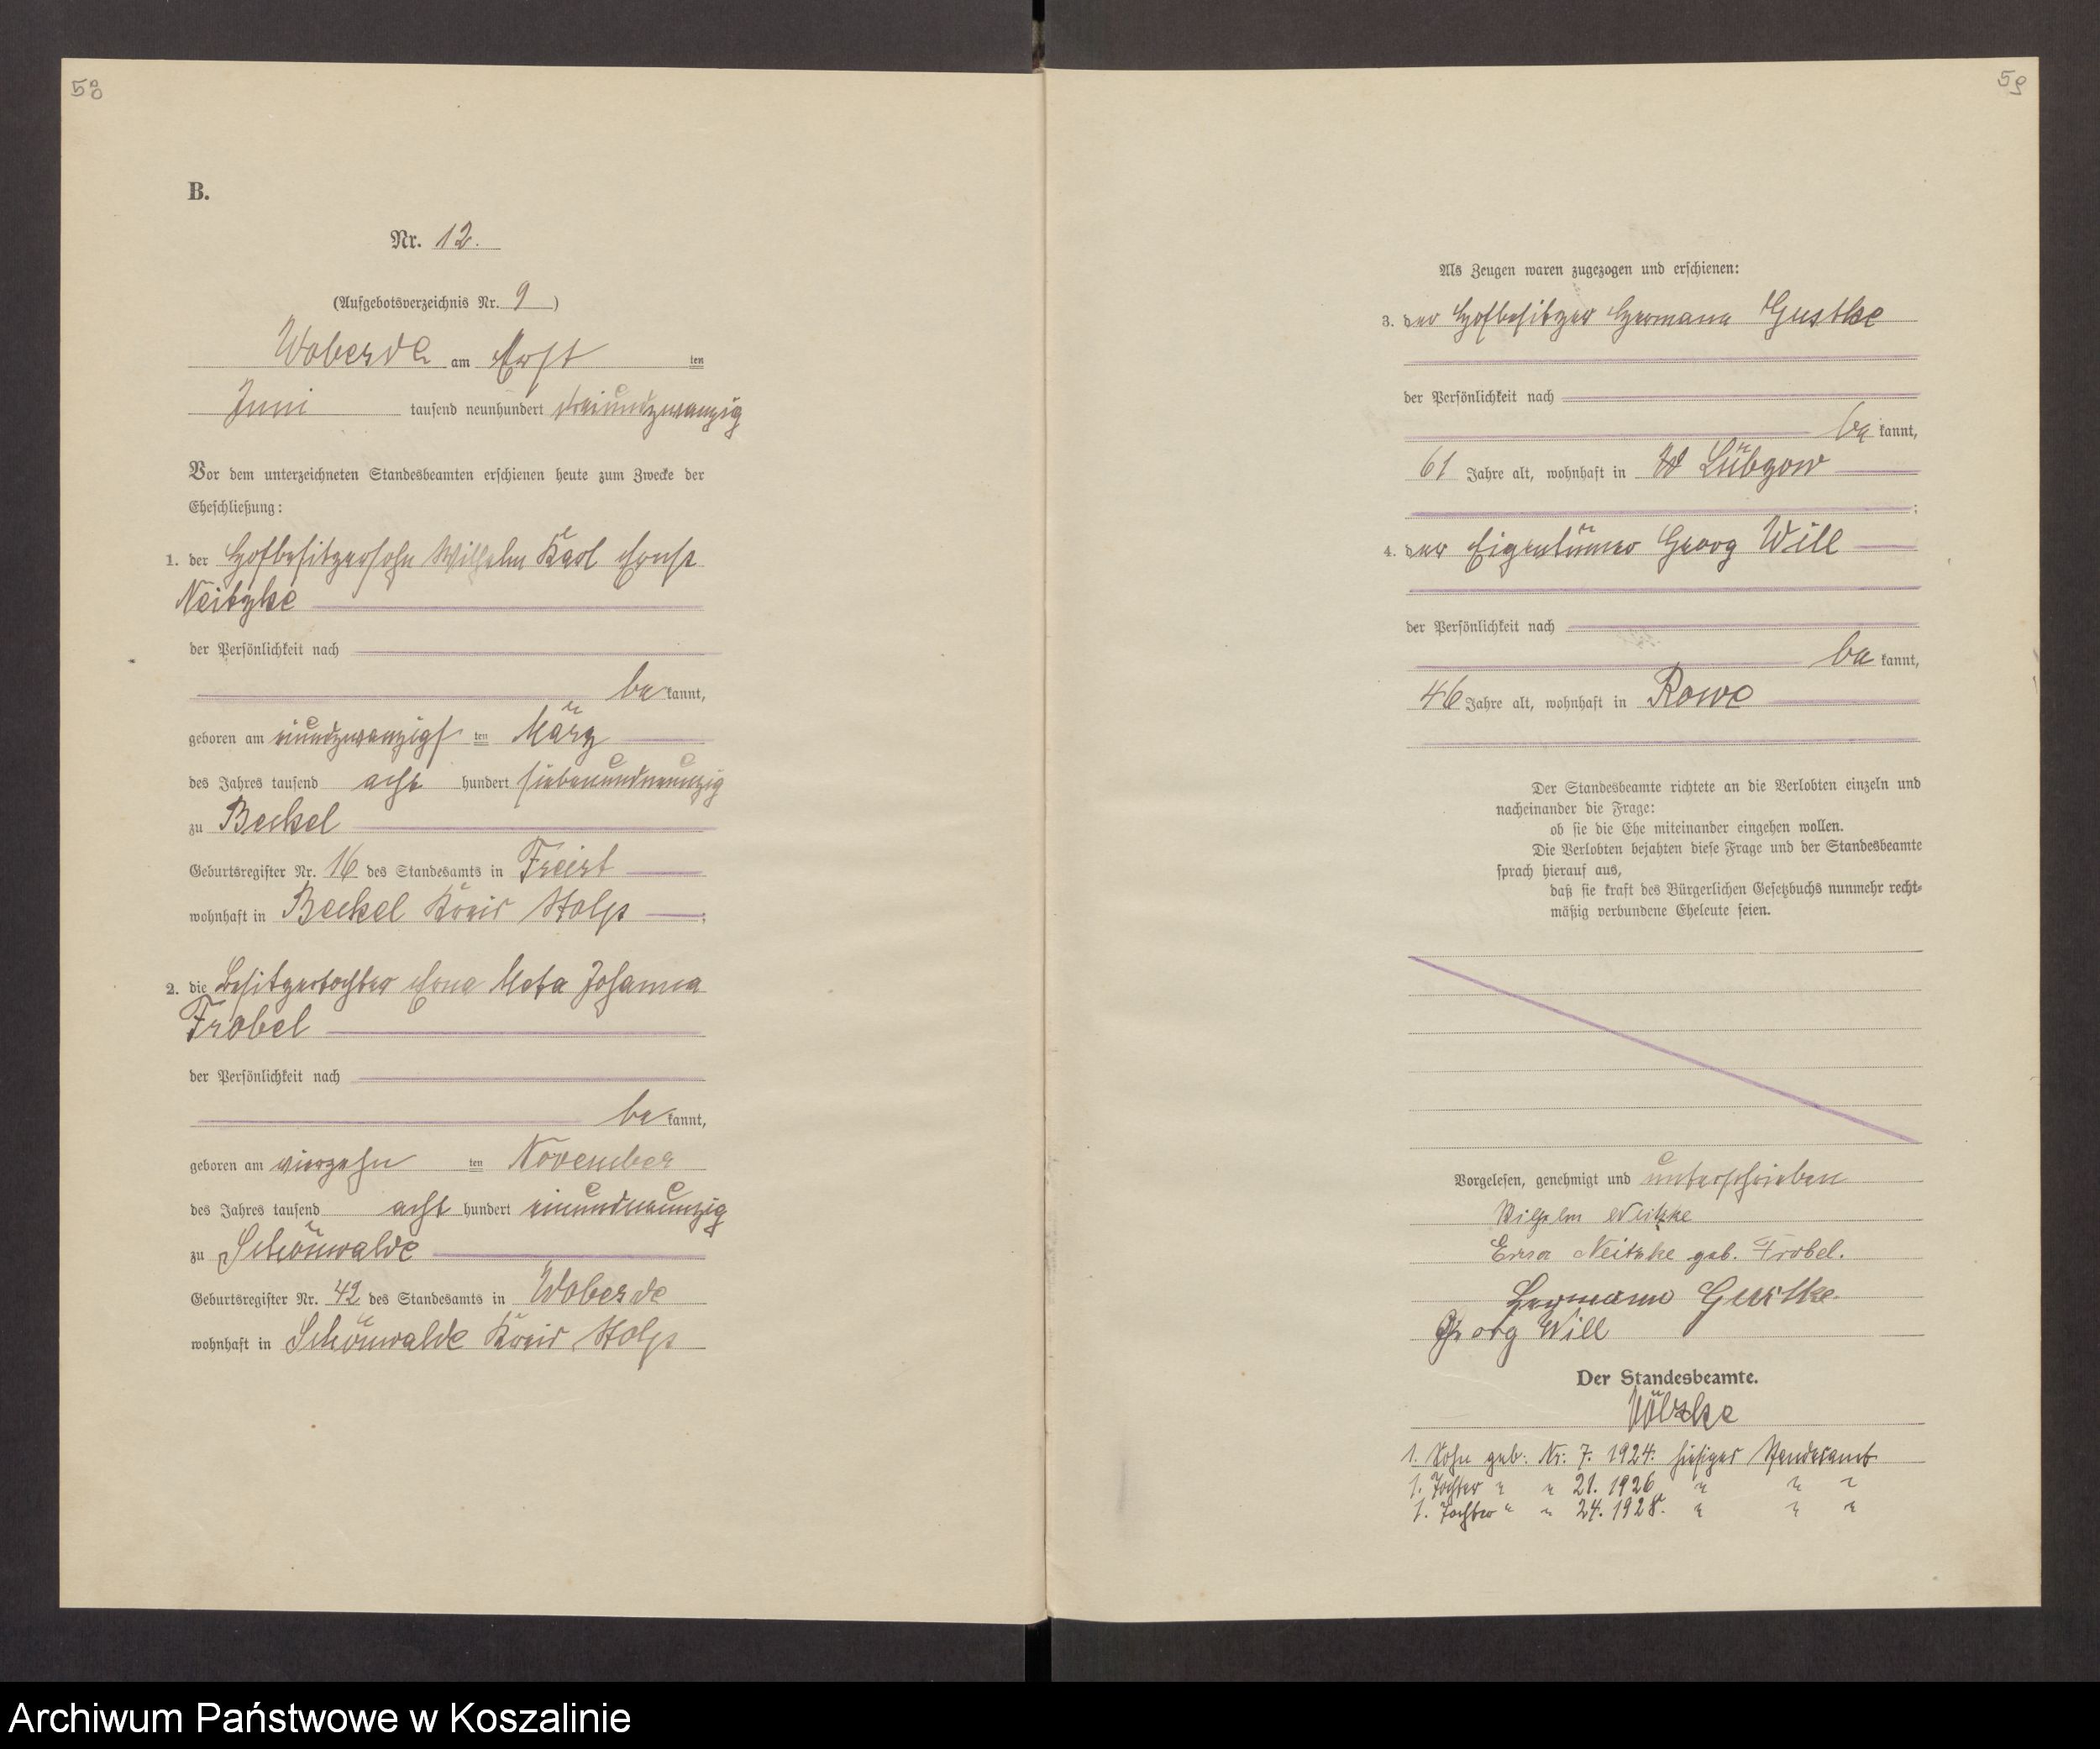 58
B.
Nr. 12.
(Aufgebotsverzeichnis Nr. 9)
Woberde am Erst ten
Juni tausend neunhundert dreiundzwanzig
Vor dem unterzeichneten Standesbeamten erschienen heute zum Zwecke der
Eheschließung:
1. der Hofbesitzersohn Wilhelm Karl Ernst
Neitzke
der Persönlichkeit nach
be kannt,
geboren am einundzwanzigs ten März
des Jahres tausend acht hundert siebenundneunzig
zu Beckel
Geburtsregister Nr. 16 des Standesamts in Freist
wohnhaft in Beckel Kreis Stolp ;
2. die Besitzertochter Erna Meta Johanna
Frobel
der Persönlichkeit nach
be kannt,
geboren am vierzehn ten November
des Jahres tausend acht hundert einundneunzig
zu Schönwalde
Geburtsregister Nr. 42 des Standesamts in Woberde
wohnhaft in Schönwalde Kreis Stolp
59
Als Zeugen waren zugezogen und erschienen:
3. der Hofbesitzer Hermann Gustke
der Persönlichkeit nach
be kannt,
61 Jahre alt, wohnhaft in Lübzow
;
4. der Eigentümer Georg Will
der Persönlichkeit nach
be kannt,
46 Jahre alt, wohnhaft in Rowe
Der Standesbeamte richtete an die Verlobten einzeln und
nacheinander die Frage:
ob sie die Ehe miteinander eingehen wollen.
Die Verlobten bejahten diese Frage und der Standesbeamte
sprach hierauf aus,
daß sie kraft des Bürgerlichen Gesetzbuchs nunmehr recht-
mäßig verbundene Eheleute seien.
Vorgelesen, genehmigt und unterschrieben
Wilhelm Neitzke
Erna Neitzke geb. Frobel.
Hermann Gustke.
Georg Will
Der Standesbeamte.
Völzke
1. Sohn geb. Nr. 7. 1924. hiesiges Standesamt
1. Tochter " " 21. 1926 " " "
1. Tochter " " 24. 1928. " " "
Archiwum Państwowe w Koszalinie